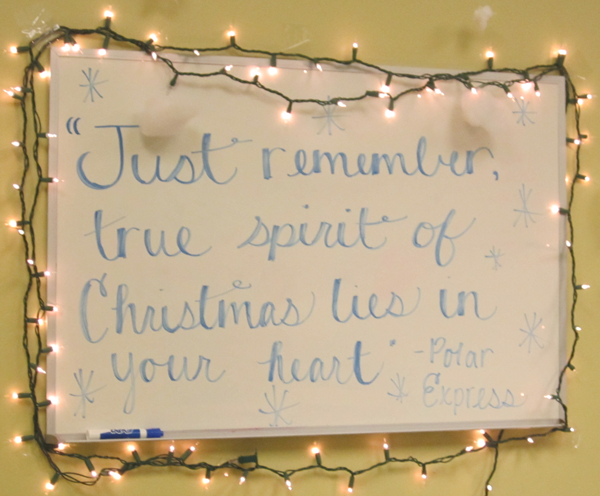 "Just remember,
true spirit of
Christmas lies in
your heart" -Polar
Express